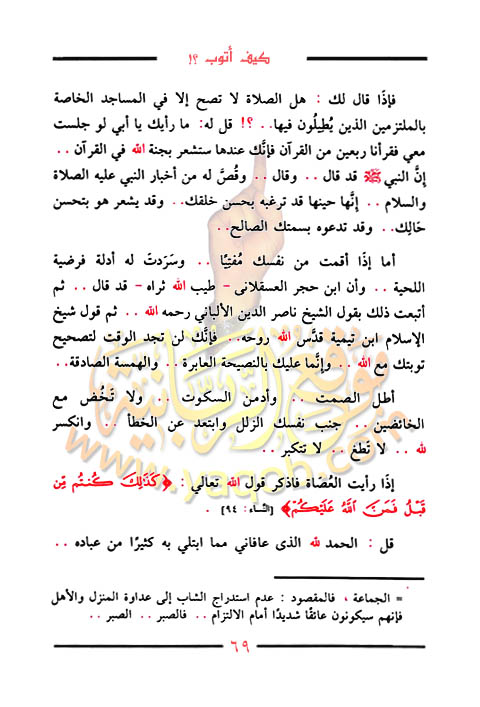 كيف أتوب ؟!
فإذَا قال لك : هل الصلاة لا تصح إلا في المساجد الخاصة
بالملتزمين الذين يُطِيلُون فيها.. ؟! قل له: ما رأيك يا أبي لو جلست
معي فقرأنا ربعين من القرآن فإنَّك عندها ستشعر بجنة الله في القرآن ..
إنَّ النبي ﷺ قد قال .. وقال .. وقُصَّ له من أخبار النبي عليه الصلاة
والسلام .. إنَّها حينها قد ترغبه بحسن خلقك.. وقد يشعر هو بتحسن
حَالِك.. وقد تدعوه بسمتك الصالح..
أما إذَا أقمت من نفسك مُفتِيًا .. وسَرَدتَ له أدلة فرضية
اللحية .. وأن ابن حجر العسقلانى - طيب الله ثراه - قد قال .. ثم
أتبعت ذلك بقول الشيخ ناصر الدين الألباني رحمه الله .. ثم قول شيخ
الإسلام ابن تيمية قدَّس الله روحه.. فإنَّك لن تجد الوقت لتصحيح
توبتك مع الله .. وإنَّما عليك بالنصيحة العابرة .. والهمسة الصادقة..
أطل الصمت .. وأدمن السكوت .. ولا تَخُض مع
الخائضين .. جنب نفسك الزلل وابتعد عن الخطأ .. وانكسر
لله .. لا تَطغ .. لا تتكبر ..
إذَا رأيت العُصَاة فاذكر قول الله تعالي : ﴿ كَذَٰلِكَ كُنتُم مِّن
قَبْلُ فَمَنَّ اللَّهُ عَلَيْكُمْ﴾ [النِّسَاء: ٩٤] .
قل : الحمد لله الذى عافاني مما ابتلي به كثيرًا من عباده ..
= الجماعة ، فالمقصود : عدم استدراج الشاب إلى عداوة المنزل والأهل
فإنهم سيكونون عائقًا شديدًا أمام الالتزام .. فالصبر .. الصبر ..
٦٩
موقع الربانية
www.yaqob.com